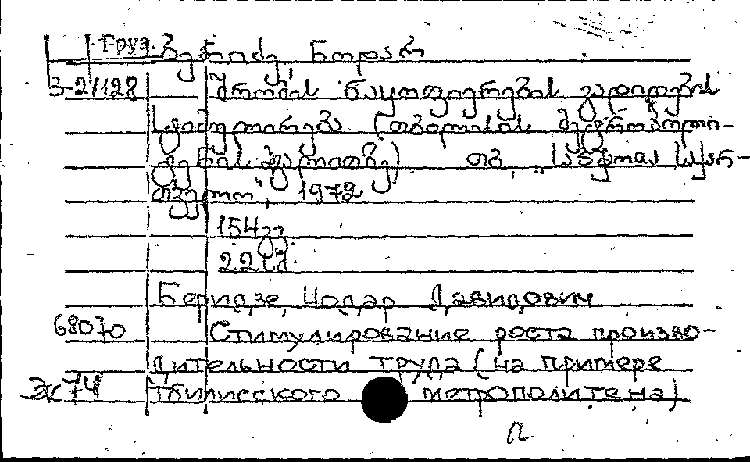 Груз. ბერიძე, ნოდარ
3-2/1128 შრომის ნაყოფიერების გადიდების
სტიმულირება (თბილისის მეტროპოლი-
ტენის მაგალითზე) თბ. „საბჭოთა საქარ-
თველო", 1972
154 გვ.
Беридзе, Нодар Давидович
68070 Стимулирование роста произво-
дительности труда (на примере
Ж74 Тбилисского метрополитена)